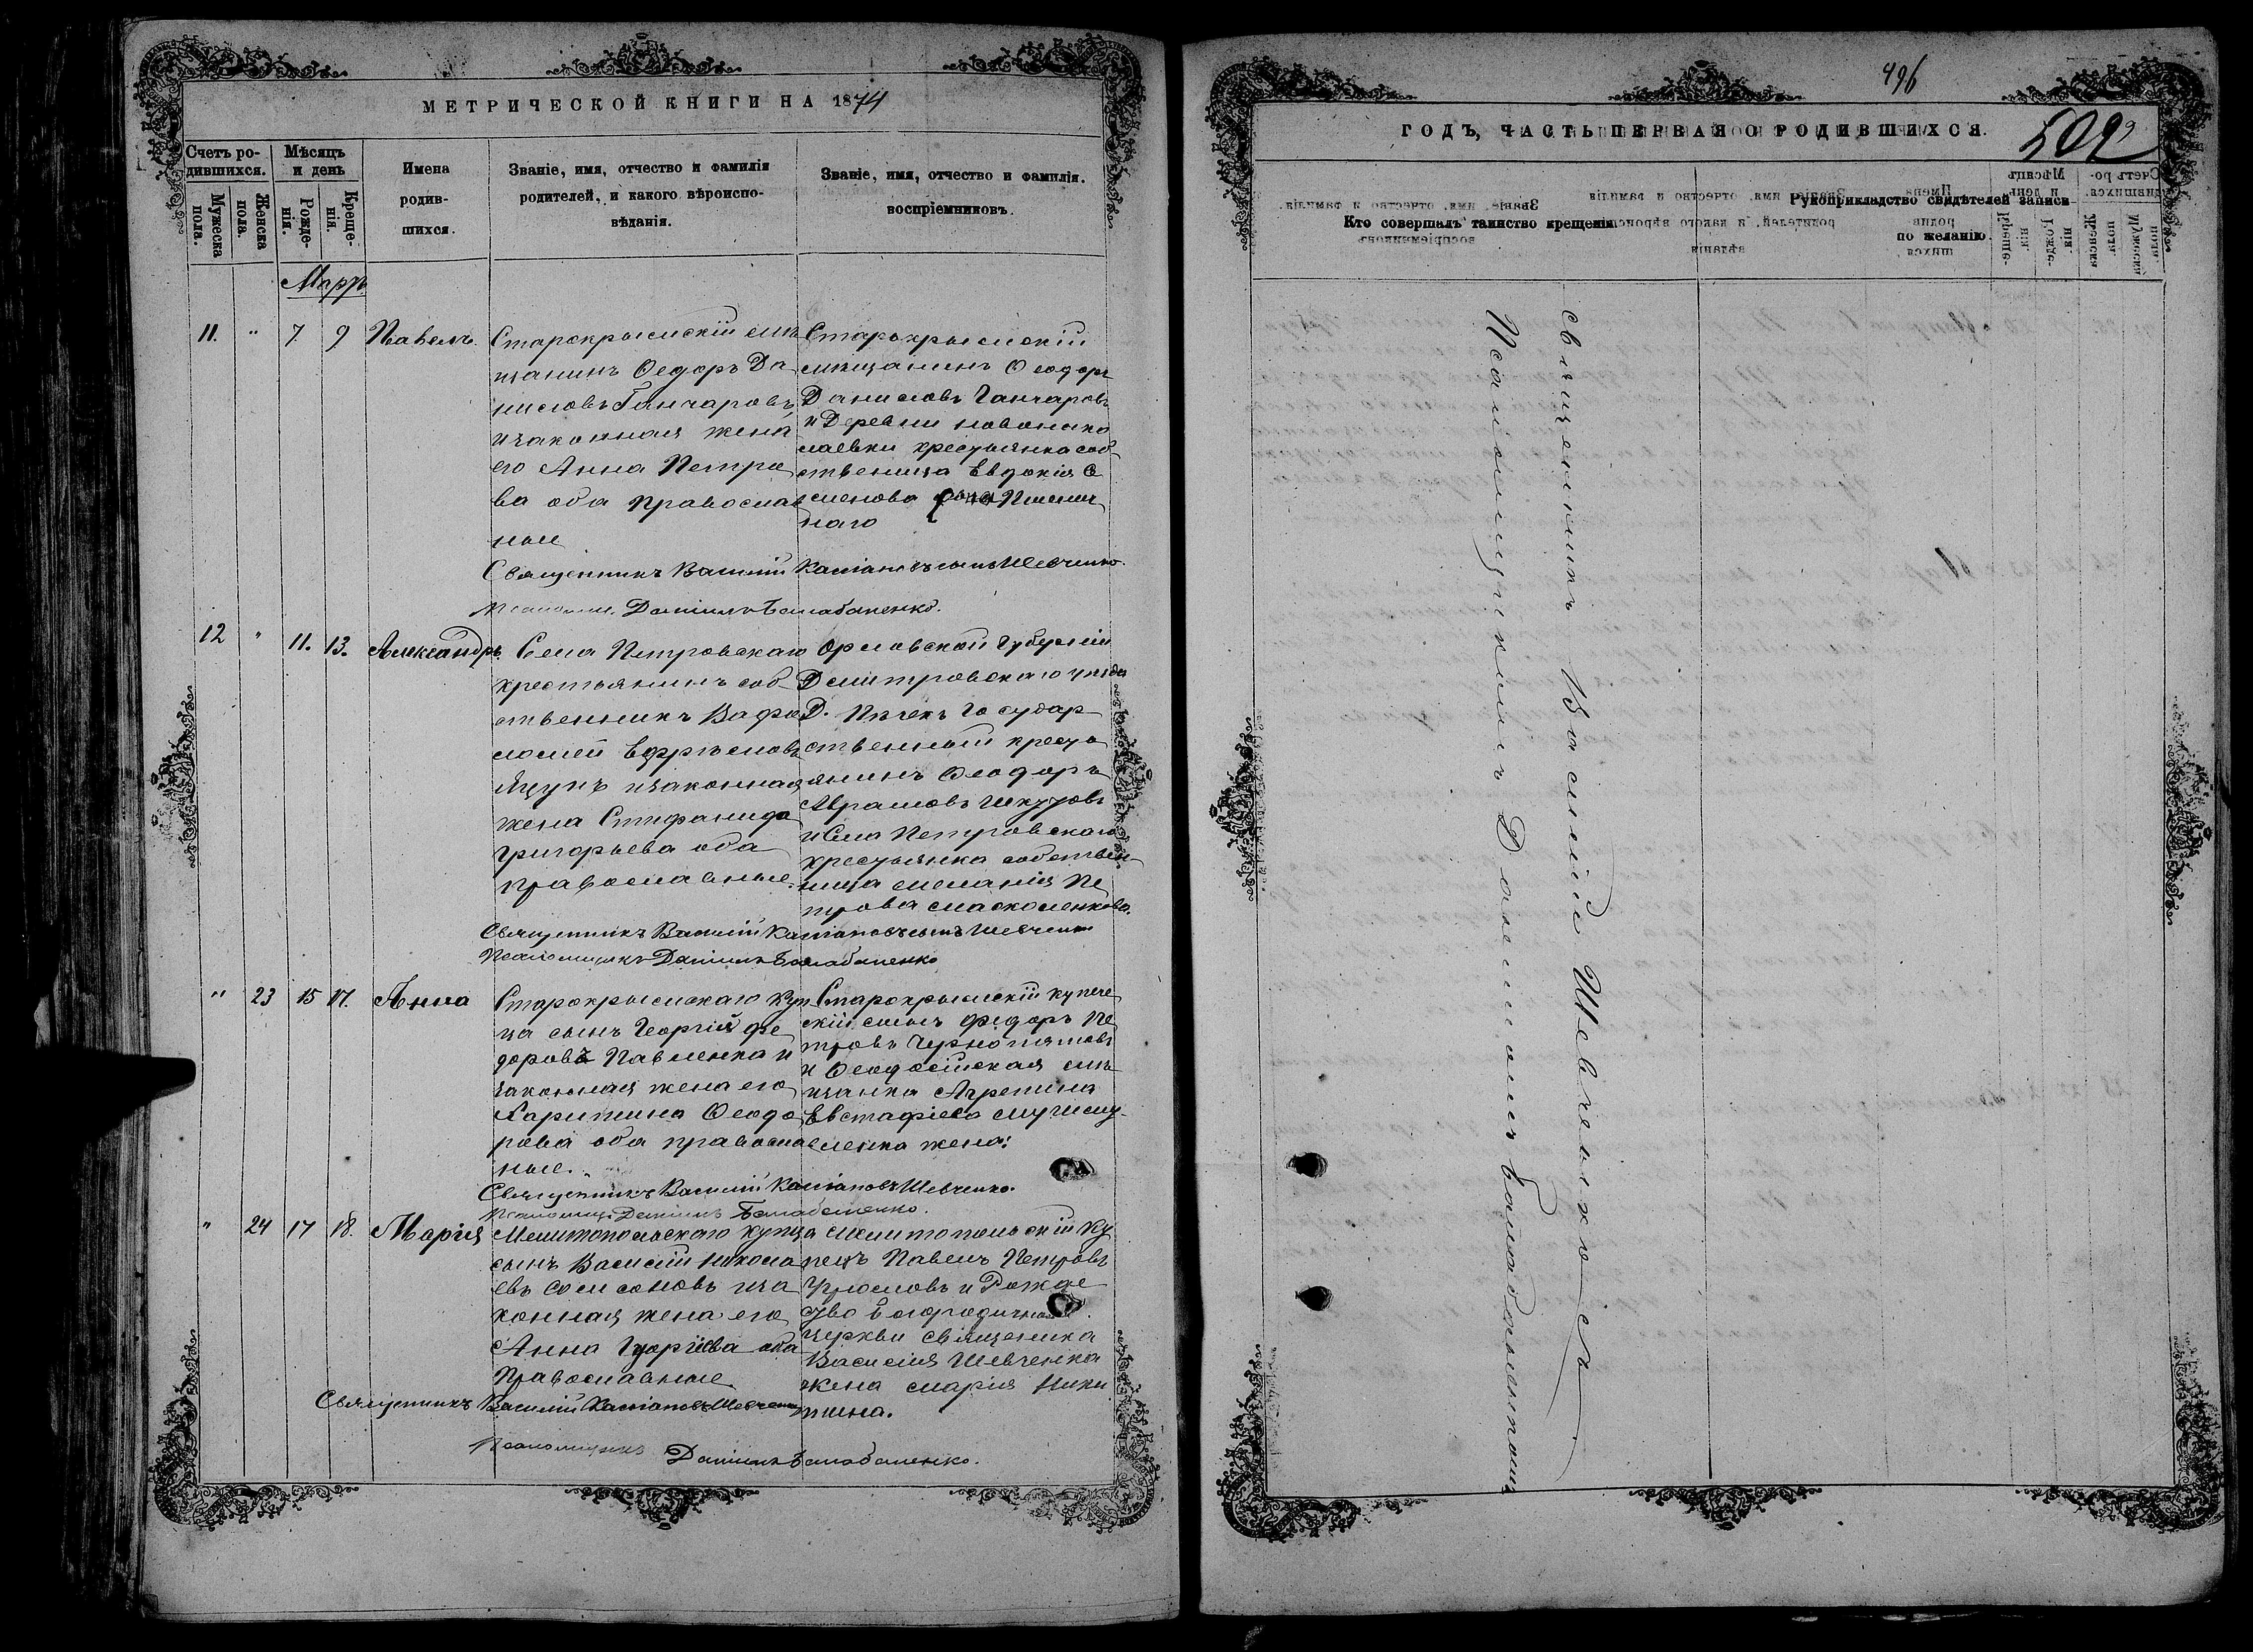 МЕТРИЧЕСКОЙ КНИГИ НА 1874
Счетъ ро-
дившихся.
Мѣсяцъ
и день
Мужеска
пола.
Женска
пола.
Рожде-
нія.
Креще-
нія.
Имена
родив-
шихся.
Званіе, имя, отчество и фамилія
родителей, и какого вѣроиспо-
вѣданія.
Званіе, имя, отчество и фамилія.
воспріемниковъ.
Мартъ
11. " 7. 9 Павелъ.
Старокрымскій мѣ
щанинъ Ѳедоръ Да
ниловъ Ганчаровъ
изаконная жена
его Анна Петро
ва оба православ
ные
Старокрымскій
мѣщанинъ Ѳеодоръ
Даниловъ Ганчаровъ
и Деревни новонико
лаевки крестьянка соб
ственица Евдокія С
еменова Пшенич
наго
Священникъ Василій Касіановъ сынъ Шевченко.
Псаломщ. Даніилъ Балабаненко.
12 " 11. 13. Александръ.
Села Петровскаго
крестьянинъ соб
ственникъ Варфо
ломей Ефремовъ
Яцунъ изаконная
жена Стефанида
Григорьева оба
православные.
Орловской Губерніи
Дмитровскаго уѣзда
Д. Государ
ственный кресть
янинъ Ѳеодоръ
Аврамовъ Шкутовъ
и Села Петровскаго
крестьянка собствен
ница Меланія Пе
трова Масколенкова.
Священникъ Василій Касіановъ сынъ Шевченко
Псаломщикъ Даніилъ Балабаненко
" 23 15 17. Анна
Старокрымскаго куп
ца сынъ Георгій Фе
доровъ Павленка и
законная жена его
Харитина Ѳеодо
рова оба православ
ные.
Старокрымскій купече
скій сынъ Федоръ Пе
тровъ Чернопятовъ
и Ѳеодосійская мѣ
щанка Агрепина
Евстафіева
ленка жена.
Священникъ Василій Касіановъ Шевченко.
Псаломщ. Даніилъ Балабаненко.
" 24 17 18. Марія
Мелитопольскаго купца
сынъ Василій Никола
евъ Самсоновъ иза
конная жена его
Анна Гуоргіева оба
Православные
Мелитопольскій ку
пецъ Павелъ Петровъ
и Рожде
ство Богородичной
церкви священика
Василія Шевченка
жена Марія Ники
тина.
Священникъ Василій Касіановъ Шевченко
Псаломщикъ
Даніилъ Балабаненко.
496
ГОДЪ, ЧАСТЬ ПЕРВАЯ О РОДИВШИХСЯ.
509
Кто совершалъ таинство крещенія
Рукоприкладство свидѣтелей записи
по желанію.
священникъ Василій Шевченко съ
Псаломщикомъ Даніиломъ Балабаненкомъ